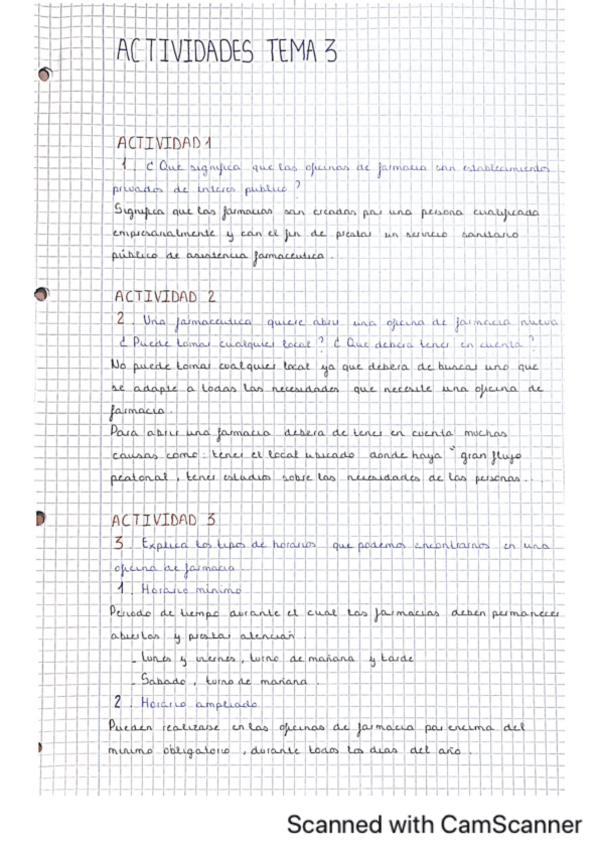 ACTIVIDADES TEMA 3
ACTIVIDAD 1
1. ¿Que significa que las oficinas de farmacia son establecimientos
privados de interes publico?
Significa que las farmacias son creadas por una persona cualificada
empresarialmente y con el fin de prestar un servicio sanitario
público de asistencia farmaceutica.
ACTIVIDAD 2
2. Una farmaceutica quiere abrir una oficina de farmacia nueva
¿Puede tomar cualquier local? ¿Que debera tener en cuenta?
No puede tomar cualquier local ya que debera de buscar uno que
se adapte a todas las necesidades que necesite una oficina de
farmacia.
Para abrir una farmacia debera de tener en cuenta muchas
causas como: tener el local ubicado donde haya gran flujo
peatonal, tener estudios sobre las necesidades de las personas...
ACTIVIDAD 3
3. Explica los tipos de horarios que podemos encontrarnos en una
oficina de farmacia
1. Horario minimo
Periodo de tiempo durante el cual las farmacias deben permanecer
abiertas y prestar atención.
- Lunes y viernes, turno de mañana y tarde
- Sabado, turno de mañana.
2. Horario ampliado
Pueden realizarse en las oficinas de farmacia por encima del
minimo obligatorio, durante todos los dias del año.
Scanned with CamScanner